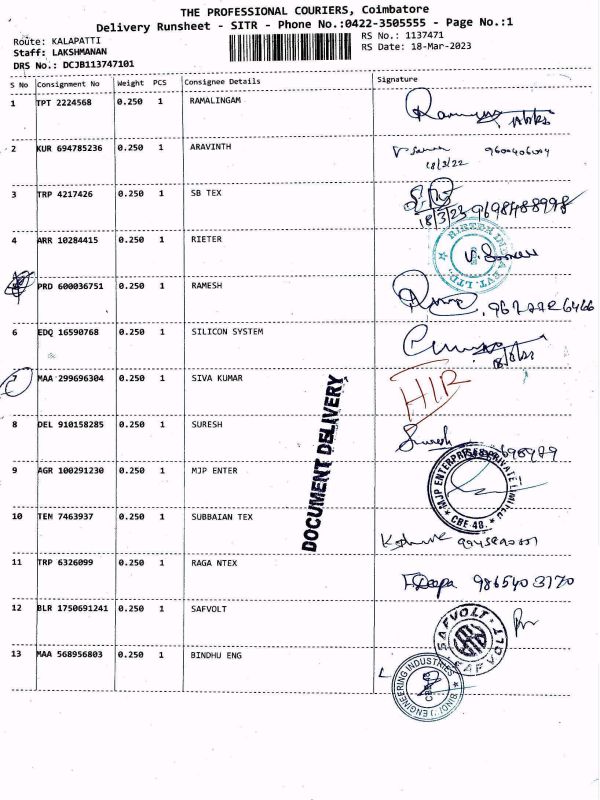 THE PROFESSIONAL COURIERS, Coimbatore
Delivery Runsheet - SITR - Phone No.:0422-3505555 - Page No.:1
Route: KALAPATTI RS No.: 1137471
Staff: LAKSHMANAN RS Date: 18-Mar-2023
DRS No.: DCJB113747101
S No Consignment No Weight PCS Consignee Details Signature
1 TPT 2224568 0.250 1 RAMALINGAM
2 KUR 694785236 0.250 1 ARAVINTH
18/3/22
3 TRP 4217426 0.250 1 SB TEX
18/3/23 9698488978
4 ARR 10284415 0.250 1 RIETER
PRD 600036751 0.250 1 RAMESH
6 EDQ 16590768 0.250 1 SILICON SYSTEM
7 MAA 299696304 0.250 1 SIVA KUMAR
DOCUMENT DELIVERY
8 DEL 910158285 0.250 1 SURESH Suresh
9 AGR 100291230 0.250 1 MJP ENTER
MJP ENTERPRISES PRIVATE LIMITED
CBE-48.
10 TEN 7463937 0.250 1 SUBBAIAN TEX
11 TRP 6326099 0.250 1 RAGA NTEX
Deepa 9865403170
12 BLR 1750691241 0.250 1 SAFVOLT
SAFVOLT
13 MAA 568956803 0.250 1 BINDHU ENG
ENGINEERING INDUSTRIES